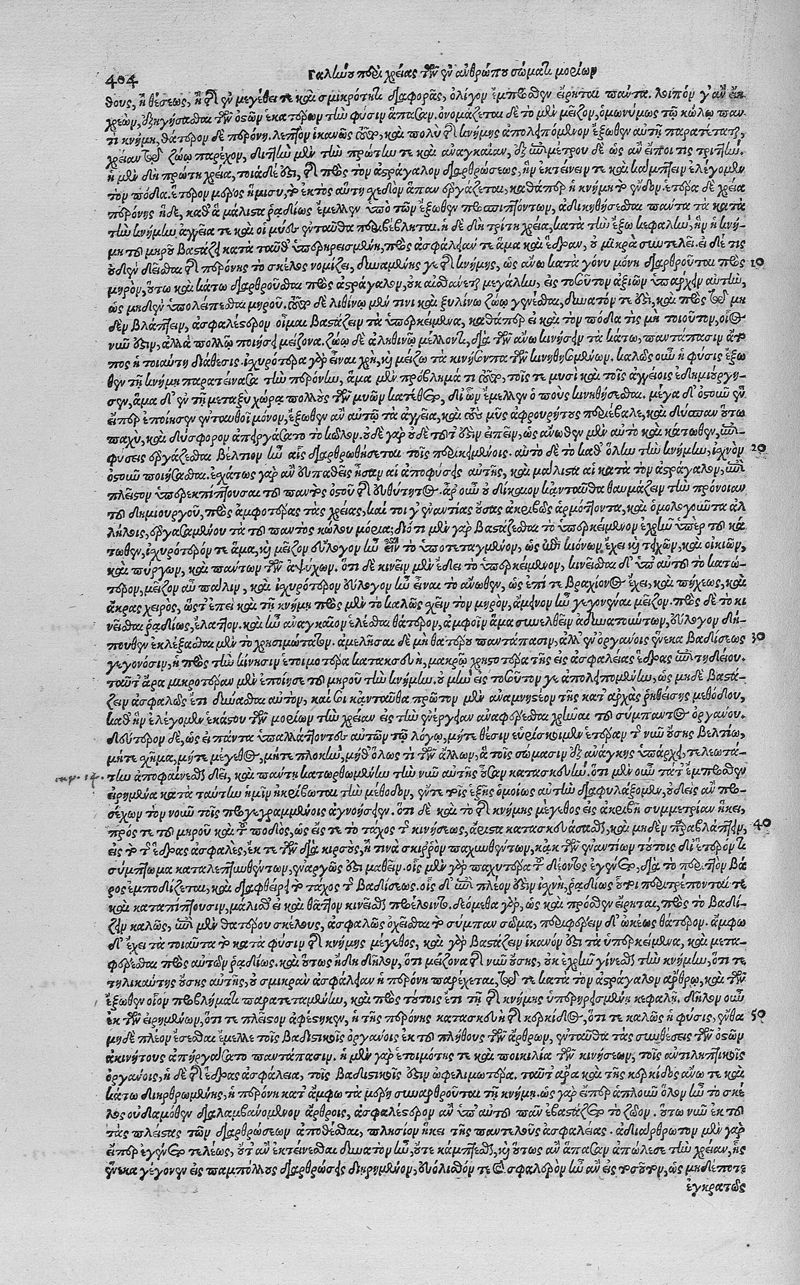 404 Γαληνοῦ περὶ χρείας τῶν ἐν ἀνθρώπου σώματι μορίων
θους, ἢ θέσεως, ἢ τῆς ἐν μεγέθει τε καὶ σμικρότητι διαφορᾶς, ὀλίγον ἔμπροσθεν εἴρηται πάντα. λοιπὸν
ἐξηγήσασθαι τῶν ὀστῶν ἑκατέρων τὴν φύσιν ἅπασαν. ὀνομάζεται δὲ τὸ μὲν μεῖζον, ὁμωνύμως τῷ κώλῳ παν
τὶ κνήμη, θάτερον δὲ περόνη. λεπτὸν ἱκανῶς καὶ πολὺ τῆς κνήμης ἀπολειπόμενον ἔξωθεν αὐτῇ παρατέταται,
χρείαν τῷ ζώῳ παρέχον, διττὴν μὲν τὴν πρώτην τε καὶ ἀναγκαίαν, ἐξ ὡς ἂν εἴποι τις τρίτην.
ἡ μὲν δὴ πρώτη χρεία, τοιάδε ἐστί, τῆς πρὸς τὸν ἀστράγαλον διαρθρώσεως, ᾗ ἐκτείνειν τε καὶ κάμπτειν ἐλέγομεν
τὸν πόδα. ἕτερον μέρος ἥμισυ, τὸ ἐκτὸς αὕτη σχεδὸν ἅπαν ἐργάζεται, καθάπερ ἡ κνήμη τὸ ἔνδον. ἑτέρα δὲ χρεία
περόνης ἥδε, καθ' ἃ μάλιστα ῥᾳδίως ἔμελλεν ὑπὸ τῶν ἔξωθεν προσπιπτόντων, ἀδικηθήσεσθαι πάντα τὰ κατὰ
τὴν κνήμην, ἀγγεῖά τε καὶ οἱ μύες ἐνταῦθα προβέβληται. ἡ δὲ δὴ τρίτη χρεία, κατὰ τὴν ἔξω κεφαλήν, ᾗ ἡ κνή
μη τὸ μηροῦ βαστάζει κατὰ ταῦθ' ὑπεστηρισμένη, πρὸς ἀσφάλειάν τε ἅμα καὶ ἕδραν, οὐ μικρὰ συντελεῖ. εἰ δέ τις
οὐδὲν δεῖσθαι τῆς περόνης τὸ σκέλος νομίζει, δυναμένης γε τῆς κνήμης, ὡς ἄνω κατὰ γόνυ μόνη διαρθροῦται πρὸς 10
μηρόν, οὕτω καὶ κάτω διαρθροῦσθαι πρὸς ἀστράγαλον, οὐκ αἰσθάνεται μεγάλην, εἰς τοῦτον ἀξιῶν ὑπάρχειν αὐτήν,
ὡς μηδὲν ὑπολείπεσθαι μηροῦ. δὲ λιθίνῳ μέν τινι καὶ ξυλίνῳ ζώῳ γενέσθαι, δυνατόν τε ἐστί, καὶ πρὸς τῷ μη
δὲν βλάπτειν, ἀσφαλέστερον οἶμαι βαστάζειν τὰ ὑπερκείμενα, καθάπερ εἰ καὶ τὸν πόδα τις μὴ τοιοῦτον, οἷος
νῦν ἐστιν, ἀλλὰ πολλῷ ποιήσει μείζονα. ζώῳ δὲ ἀληθινῷ μέλλοντι, διὰ τῶν ἄνω κινήσειν τὰ κάτω, παντάπασιν ἄτο
πος ἡ τοιαύτη διάθεσις. ἰσχυρότερα γὰρ εἶναι χρή, καὶ μείζω τὰ κινήσοντα τῶν κινηθησομένων. καλῶς οὖν ἡ φύσις ἔξω
θεν τῇ κνήμῃ παρατείνασα τὴν περόνην, ἅμα μὲν πρόβλημά τι τοῖς τε μυσὶ καὶ τοῖς ἀγγείοις ἐδημιούργη
σεν, ἅμα δ' ἐν τῇ μεταξὺ χώρᾳ πολλοὺς τῶν μυῶν κατέθετο, δι' ὧν ἔμελλεν ὁ ποὺς κινηθήσεσθαι. μέγα δ' ὀστοῦν ἓν
εἴπερ ἐποίησεν ἐνταυθοῖ μόνον, ἔξωθεν ἂν αὐτῷ τὰ ἀγγεῖα, καὶ τοὺς μῦς ἀφρουρήτους περιέβαλε, καὶ δύναιτ' ἂν οὕτω
παχύ, καὶ δύσφορον ἀπειργάσατο τὸ κῶλον. οὐδὲ γὰρ οὐδὲ τοῦτ' ἔστιν εἰπεῖν, ὡς ἄνωθεν μὲν αὐτὸ καὶ κάτωθεν,
φύσεις ἐργάζεσθαι βέλτιον ἦν αἷς διαρθρωθήσεται τοῖς περικειμένοις. αὐτὸ δὲ τὸ καθ' ὅλην τὴν κνήμην, ἰσχνὸν 20
ὀστοῦν ποιήσασθαι. ἐσχάτως γὰρ ἂν εὐπαθεῖς ἦσαν αἱ ἀποφύσεις αὐτῆς, καὶ μάλιστα αἱ κατὰ τὸν ἀστράγαλον,
πλεῖστον ὑπερεκπίπτουσαι τῆς παντὸς ὀστοῦ τῆς εὐθύτητος. ἆρ' οὖν οὐ δίκαιον κἀνταῦθα θαυμάζειν τὴν πρόνοιαν
τοῦ δημιουργοῦ, πρὸς ἀμφοτέρας τὰς χρείας, καί τοι γ' ἐναντίας οὔσας ἀκριβῶς ἁρμόττοντα, καὶ ὁμολογοῦντα ἀλ
λήλοις, ἐργασαμένου τὰ τοῦ παντὸς κώλου μόρια; διότι μὲν γὰρ βαστάζεσθαι τὸ ὑπερκείμενον ἐχρῆν ὑπὲρ τοῦ κά
τωθεν, ἰσχυρότερόν τε ἅμα, καὶ μεῖζον εὔλογον ἦν εἶναι τὸ ὑποτεταγμένον, ὡς ἐπὶ κιόνων ἔχει καὶ τειχῶν, καὶ οἰκιῶν,
καὶ πύργων, καὶ πάντων τῶν ἀψύχων. ὅτι δὲ κινεῖν μὲν ἔδει τὸ ὑπερκείμενον, κινεῖσθαι δ' ὑπ' αὐτοῦ τὸ κατώ
τερον, μεῖζον αὖ πάλιν, καὶ ἰσχυρότερον εὔλογον ἦν εἶναι τὸ ἄνωθεν, ὡς ἐπί τε βραχίονος ἔχει, καὶ πήχεως, καὶ
ἄκρας χειρός, ὥστ' ἐπεὶ καὶ τῇ κνήμῃ πρὸς μὲν τὸ καλῶς ὀχεῖν τὸν μηρόν, ἄμεινον ἦν γεγονέναι μεῖζον. πρὸς δὲ τὸ κι
νεῖσθαι ῥᾳδίως, ἔλαττον. καὶ ἦν ἀναγκαῖον ἑλέσθαι θάτερον, ἀμφοῖν ἅμα συνελθεῖν ἀδυνατούντων, εὔλογον δή
πουθεν ἐκλέξασθαι μὲν τὸ χρησιμώτατον. ἀμελῆσαι δὲ μὴ θατέρου παντάπασιν, ἀλλ' ἐν ὀργάνοις ἕνεκα βαδίσεως 30
γεγονόσιν, ἡ πρὸς τὴν κίνησιν ἑτοιμοτέρα κατασκευή, μακρῷ χρηστοτέρα τῆς εἰς ἀσφάλειαν ἕδρας ἐπιτηδείου.
ταῦτ' ἄρα μικροτέραν μὲν ἐποίησε τοῦ μηροῦ τὴν κνήμην. οὐ μὴν εἰς τοῦτόν γε ἀπολειπομένην, ὡς μηδὲ βαστά
ζειν ἀσφαλῶς ἔτι δύνασθαι αὐτόν, καί σοι κἀνταῦθα πρῶτον μὲν ἀναμνηστέον τῆς κατ' ἀρχὰς ῥηθείσης μεθόδου,
καθ' ἣν ἐλέγομεν ἑκάστου τῶν μορίων τὴν χρείαν εἰς τὴν ἐνέργειαν ἀναφέρεσθαι χρῆναι τοῦ σύμπαντος ὀργάνου.
δεύτερον δέ, ὡς εἰ πάντα ὑπαλλάττοντες αὐτῶν τῷ λόγῳ, μήτε θέσιν εὑρίσκοιμεν ἑτέραν τῆς νῦν οὔσης βελτίω,
μήτε σχῆμα, μήτε μέγεθος, μήτε πλοκήν, μήθ' ὅλως τι τῶν ἄλλων, ἃ τοῖς σώμασιν ἐξ ἀνάγκης ὑπάρχει, τελεωτά
την ἀποφαίνεσθαι δεῖ, καὶ πάντη κατωρθωμένην τὴν νῦν αὐτῆς οὖσαν κατασκευήν. ὅτι μὲν οὖν τὰ ἔμπροσθεν
εἰρημένα κατὰ ταύτην ἡμῖν ἠκρίβωται τὴν μέθοδον, ἔν τε τοῖς ἑξῆς ὁμοίως αὐτὴν διαφυλάξομεν, οὐδεὶς ἂν προ
σέχων τὸν νοῦν τοῖς προγεγραμμένοις ἀγνοήσειεν. ὅτι δὲ καὶ τὸ τῆς κνήμης μέγεθος εἰς ἀκριβῆ συμμετρίαν ἥκει,
πρός τε τὸ τοῦ μηροῦ καὶ τὸ ποδός, ὡς εἴς τε τὸ τάχος τῆς κινήσεως, ἄριστα κατασκευάσασθαι, καὶ μηδὲν παραβλάπτειν, 40
εἰς τὸ τῆς ἕδρας ἀσφαλές, ἔκ τε τῶν διὰ κιρσούς, ἤ τινα σκίρρον παχυνθέντων, κἀκ τῶν ἐναντίων τούτοις δι' ἕτερόν τι
σύμπτωμα καταλεπτυνθέντων, ἐναργῶς ἔστι μαθεῖν. οἷς μὲν γὰρ παχυτέρα τοῦ δέοντος ἐγένετο, διὰ τὸ περιττὸν βά
ρος ἐμποδίζεται, καὶ διαφθείρει τὸ τάχος τῆς βαδίσεως. οἷς δ' ἐπὶ πλέον ἐστὶν ἰσχνή, ῥᾳδίως οὗτοι περιτρέπονταί τε
καὶ καταπίπτουσιν, μάλιστ' εἰ καὶ θᾶττον κινεῖσθαι προέλοιντο. δεόμεθα γάρ, ὡς καὶ πρόσθεν εἴρηται, πρὸς τὸ βαδί
ζειν καλῶς, ἐπὶ μὲν θατέρου σκέλους, ἀσφαλῶς ὀχεῖσθαι τὸ σύμπαν σῶμα, περιφέρειν δ' ὠκέως θάτερον. ἄμφω
δ' ἔχει τὰ τοιαῦτα τὸ κατὰ φύσιν τῆς κνήμης μέγεθος, καὶ γὰρ βαστάζειν ἱκανόν ἐστι τὰ ὑπερκείμενα, καὶ μετα
φέρεσθαι πρὸς αὐτῶν ῥᾳδίως. καὶ οὕτως ἤδη δῆλον, ὅτι μείζονα τῆς νῦν οὔσης, οὐκ ἐχρῆν γίνεσθαι τὴν κνήμην, ὅτι τε
τηλικαύτης οὔσης αὐτῆς, οὐ σμικρὰν ἀσφάλειαν ἡ περόνη παρέχεται, τῷ τε κατὰ τὸν ἀστράγαλον ἄρθρῳ, καὶ τῶν
ἔξωθεν οἷον προβλήματι παρατεταμένην, καὶ πρὸς τούτοις ἔτι τῇ τῆς κνήμης ὑπεστηριγμένη κεφαλῇ. δῆλον οὖν
ἐκ τῶν εἰρημένων, ὅτι τε πλεῖστον ἀφέστηκεν, ἡ τῆς περόνης κατασκευὴ τῆς κερκίδος, ὅτι τε καλῶς ἡ φύσις, ἔνθα 50
μηδὲ πλέον ἔσεσθαι ἔμελλε τοῖς βαδιστικοῖς ὀργάνοις ἐκ τοῦ πλήθους τῶν ἄρθρων, ἐνταῦθα τὰς συνθέσεις τῶν ὀστῶν
ἀκινήτους ἀπειργάσατο παντάπασιν. ἡ μὲν γὰρ ἑτοιμότης τε καὶ ποικιλία τῶν κινήσεων, τοῖς ἀντιληπτικοῖς
ὀργάνοις, ἡ δὲ τῆς ἕδρας ἀσφάλεια, τοῖς βαδιστικοῖς ἐστιν ὠφελιμωτέρα. ταῦτ' ἄρα καὶ τῆς κερκίδος ἄνω τε καὶ
κάτω διηρθρωμένης, ἡ περόνη κατ' ἄμφω τὰ μέρη συναρθροῦται τῇ κνήμῃ. ὡς γὰρ εἴπερ ἁπλοῦν ὅλον ἦν τὸ σκέ
λος οὐδαμόθεν διαλαμβανόμενον ἄρθροις, ἀσφαλέστερον ἂν ὑπ' αὐτοῦ πᾶν ἐβαστάζετο τὸ ζῷον. οὕτω νῦν ἐκ τοῦ
τὰς πλείστας τῶν διαρθρώσεων ἀποθέσθαι, πλησίον ἥκει τῆς παντελοῦς ἀσφαλείας. ἀδιάρθρωτον μὲν γὰρ
εἴπερ ἐγένετο τελέως, οὔτ' ἂν ἐκτείνεσθαι δυνατὸν ἦν, οὔτε κάμπτεσθαι, καὶ οὕτως ἂν ἅπασαν ἀπώλεσε τὴν χρείαν, ἧς
ἕνεκα γέγονεν εἰς παμπόλλους διαρθρώσεις διῃρημένον, εὐόλισθόν τε καὶ σφαλερὸν ἦν ἂν εἰς τοσοῦτον, ὡς μηδέποτε
ἐγκρατῶς